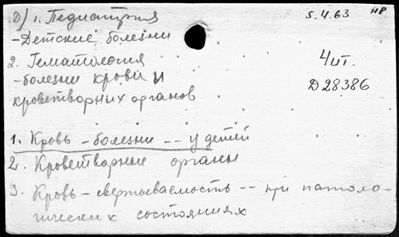 Д) 1. Педиатрия
5.4.63
НР
- Детские болезни
2. Гематология
4 шт.
- болезни крови и
Д 28386
кроветворных органов
1. Кровь - болезни -- у детей
2. Кроветворные органы
3. Кровь - свертываемость -- при патоло-
гических состояниях